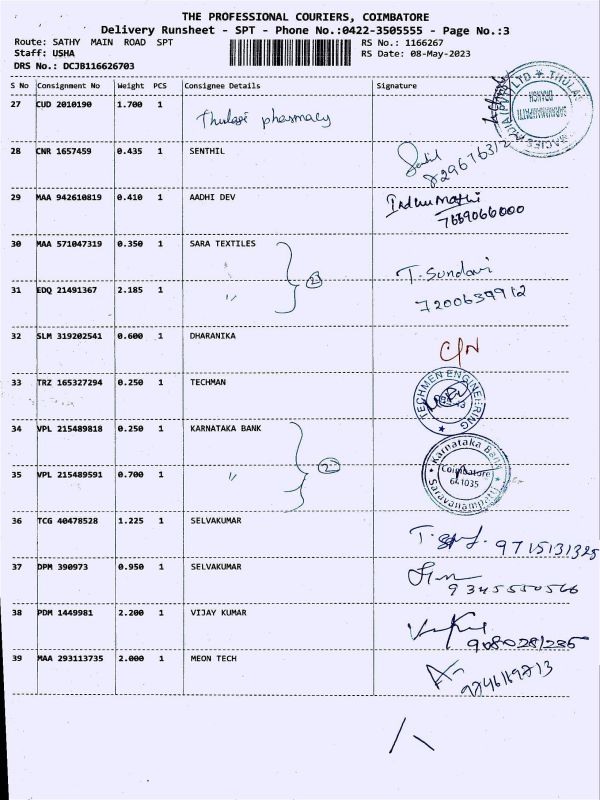 THE PROFESSIONAL COURIERS, COIMBATORE
Delivery Runsheet - SPT - Phone No.:0422-3505555 - Page No.:3
Route: SATHY MAIN ROAD SPT RS No.: 1166267
Staff: USHA RS Date: 08-May-2023
DRS No.: DCJB116626703
S No Consignment No Weight PCS Consignee Details Signature
27 CUD 2010190 1.700 1 Thulasi pharmacy
28 CNR 1657459 0.435 1 SENTHIL
29 MAA 942610819 0.410 1 AADHI DEV Indhumathi
7669066000
30 MAA 571047319 0.350 1 SARA TEXTILES T. Sundari
31 EDQ 21491367 2.185 1 " 2 7200639912
32 SLM 319202541 0.600 1 DHARANIKA C/N
33 TRZ 165327294 0.250 1 TECHMAN TECHMEN ENGINEERING
34 VPL 215489818 0.250 1 KARNATAKA BANK Karnataka Bank
Coimbatore
641035
Saravanampatti
35 VPL 215489591 0.700 1 " 2
36 TCG 40478528 1.225 1 SELVAKUMAR 9715131325
37 DPM 390973 0.950 1 SELVAKUMAR
9345550566
38 PDM 1449981 2.200 1 VIJAY KUMAR
9080281235
39 MAA 293113735 2.000 1 MEON TECH
9746169713